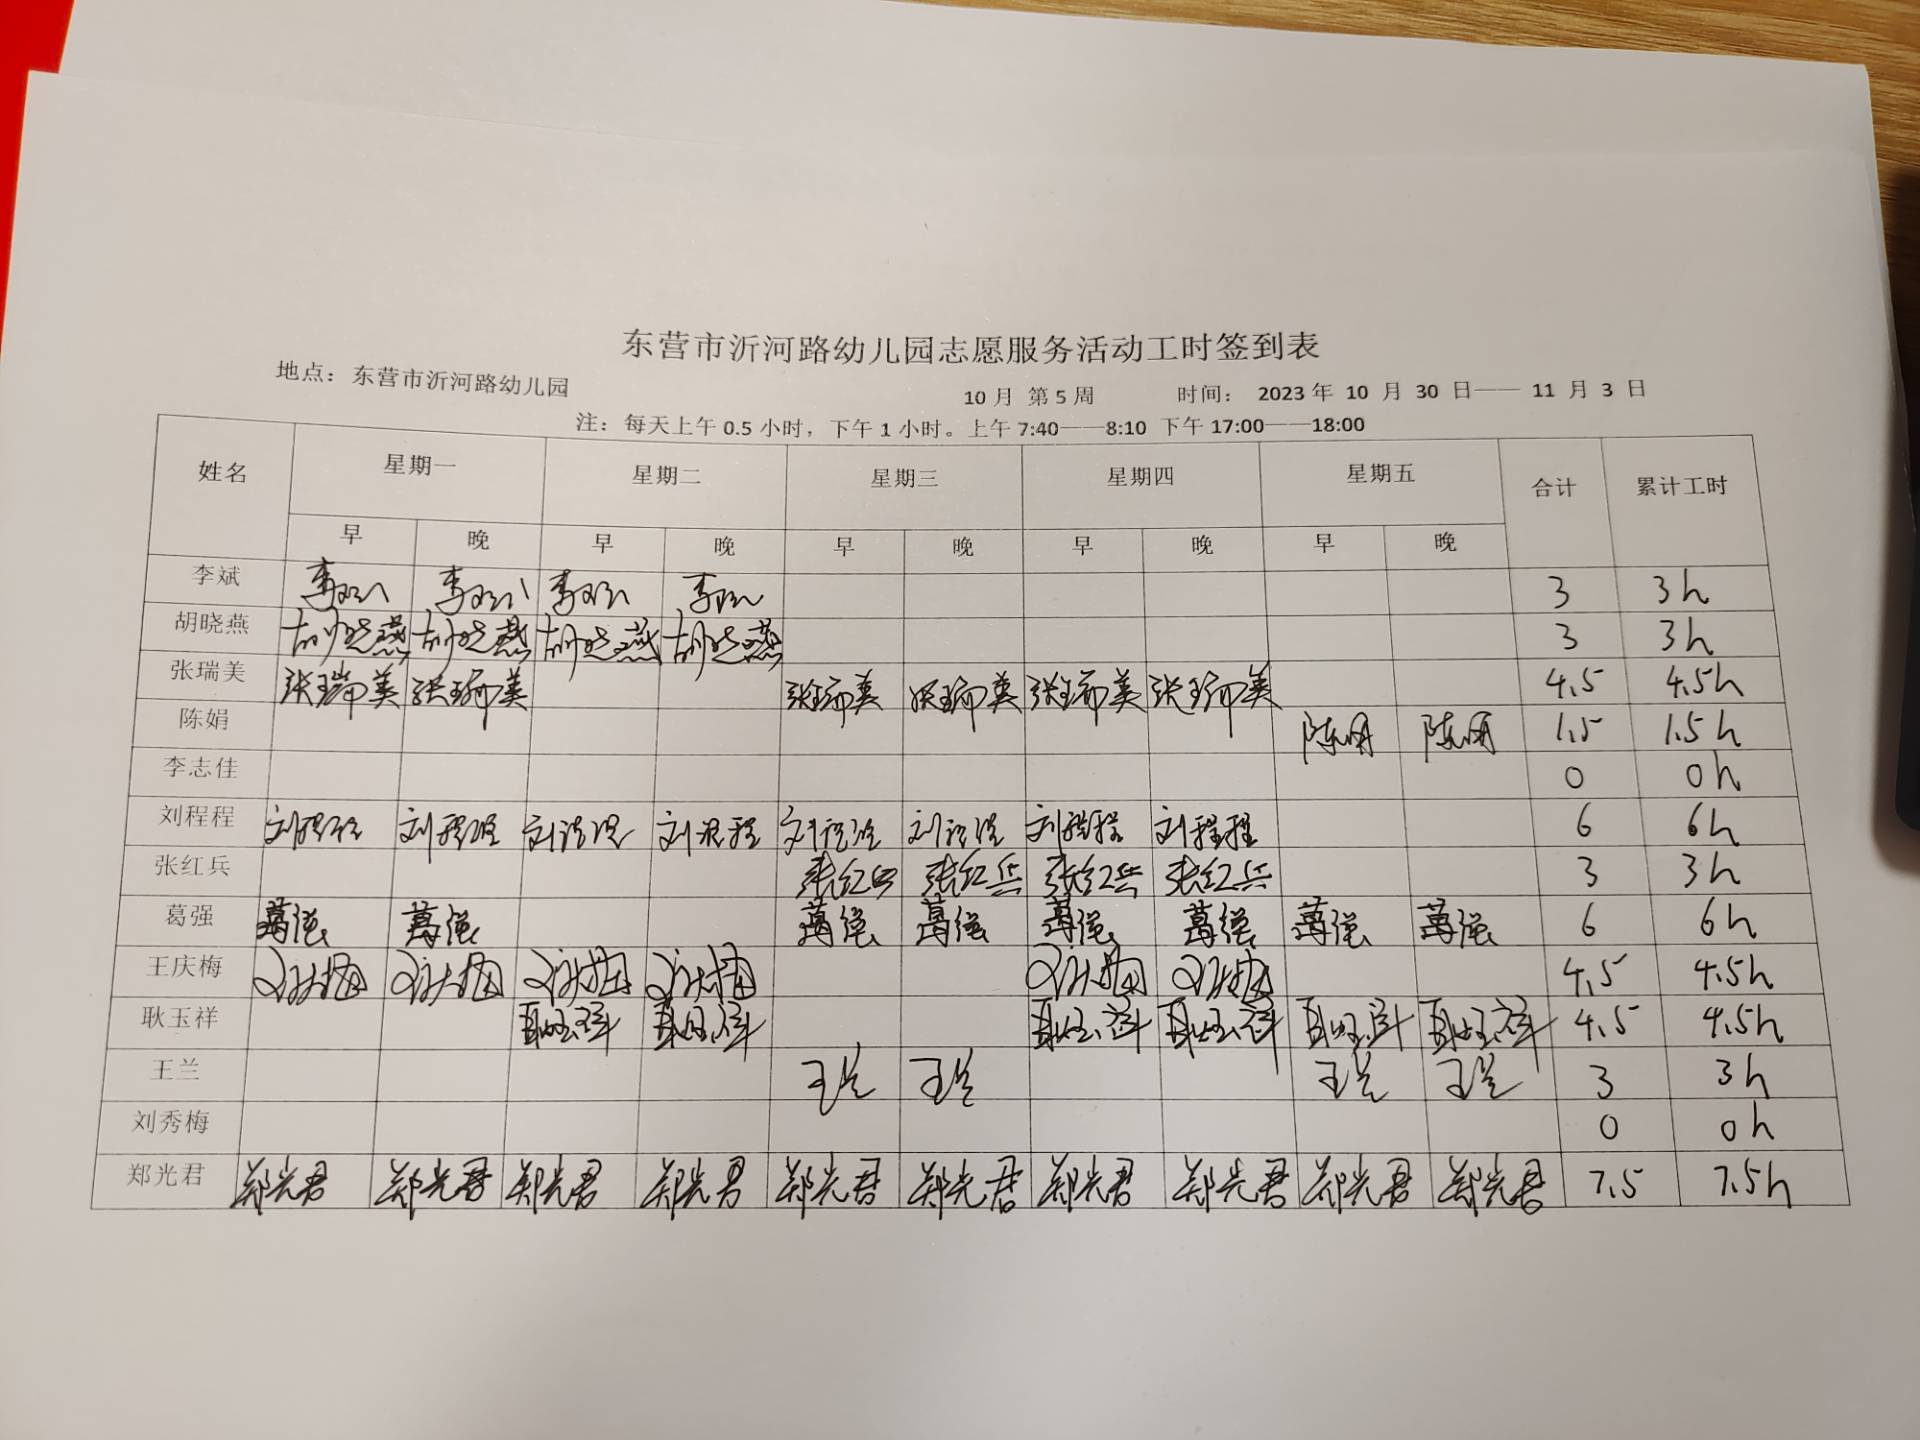 东营市沂河路幼儿园志愿服务活动工时签到表
地点：东营市沂河路幼儿园 10 月 第 5 周 时间： 2023 年 10 月 30 日—— 11 月 3 日
注：每天上午 0.5 小时，下午 1 小时。上午 7:40——8:10 下午 17:00——18:00
姓名 星期一 星期二 星期三 星期四 星期五 合计 累计工时
早 晚 早 晚 早 晚 早 晚 早 晚
李斌 李斌 李斌 李斌 李斌 3 3h
胡晓燕 胡晓燕 胡晓燕 胡晓燕 胡晓燕 3 3h
张瑞美 张瑞美 张瑞美 张瑞美 张瑞美 张瑞美 张瑞美 4.5 4.5h
陈娟 陈娟 陈娟 1.5 1.5h
李志佳 0 0h
刘程程 刘程程 刘程程 刘程程 刘程程 刘程程 刘程程 刘程程 刘程程 6 6h
张红兵 张红兵 张红兵 张红兵 张红兵 3 3h
葛强 葛强 葛强 葛强 葛强 葛强 葛强 葛强 葛强 6 6h
王庆梅 王庆梅 王庆梅 王庆梅 王庆梅 王庆梅 王庆梅 4.5 4.5h
耿玉祥 耿玉祥 耿玉祥 耿玉祥 耿玉祥 耿玉祥 耿玉祥 4.5 4.5h
王兰 王兰 王兰 王兰 王兰 3 3h
刘秀梅 0 0h
郑光君 郑光君 郑光君 郑光君 郑光君 郑光君 郑光君 郑光君 郑光君 郑光君 郑光君 7.5 7.5h